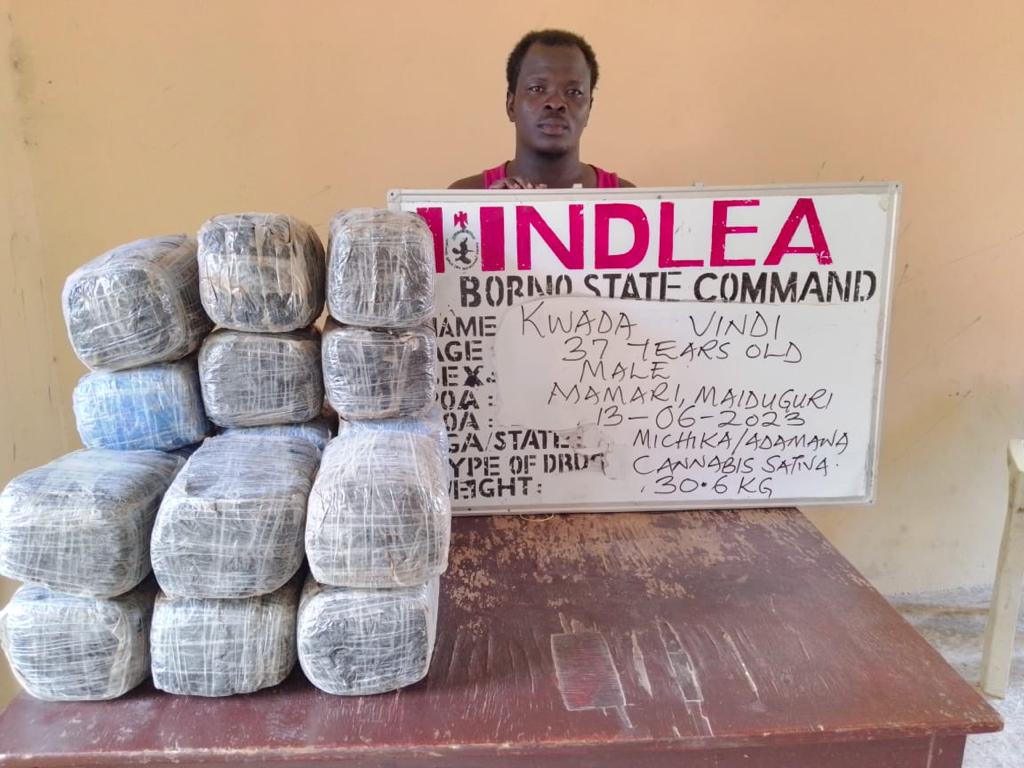 NDLEA
BORNO STATE COMMAND
NAME KWADA VINDI
AGE 37 YEARS OLD
SEX: MALE
POA: MAMARI, MAIDUGURI
DOA: 13-06-2023
LGA/STATE: MICHIKA/ADAMAWA
TYPE OF DRUG CANNABIS SATIVA.
WEIGHT: 30.6 KG